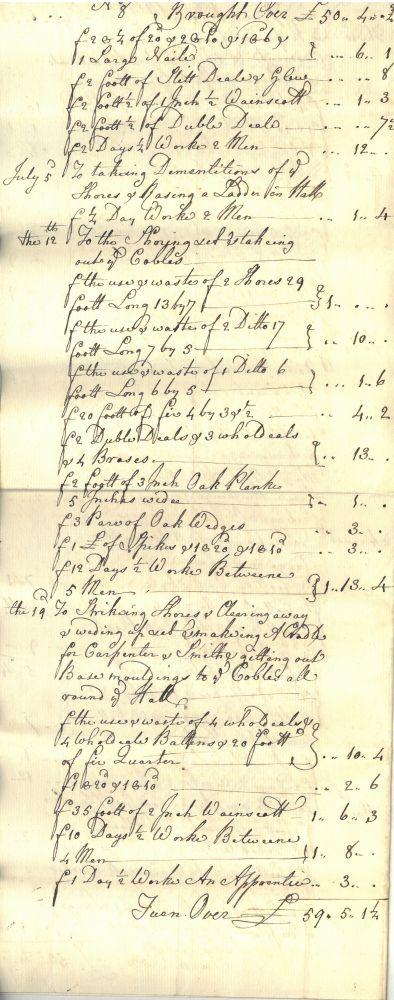 N 8 Brought Over £ 50 .. 4 .. 2
f 2 3/4 of 20d & 2 8 10d & 1 8 6d &
1 Large Naile .. 6 .. 1
f 2 foott of Slitt Deale & Glew .. .. 8
f 2 foott 1/2 of 1 Inch 1/2 Wainscott .. 1 .. 3
f 2 foott 1/2 of Duble Deale .. .. 7 1/2
f 2 Days 1/4 Worke 2 Men .. 12 ..
July 5th To takeing Dementitions of ye
Shores & Rasing a Ladder in Hall
f 1/4 Day Worke 2 Men .. 1 .. 4
the 12th To the Shoring set & takeing
out ye Cobles
f the use & waste of 2 Shores 29
foott Long 13 by 7 1 .. .. ..
f the use & waste of 2 Ditto 17
foott Long 7 by 5 .. 10 ..
f the use & waste of 1 Ditto 6
foott Long 6 by 5 .. 1 .. 6
f 20 foott of fir 4 by 3 & 1/2 .. 4 .. 2
f 2 Duble Deals & 3 whol deals
& 4 Brases .. 13 ..
f 2 foott of 3 Inch Oak Planke
5 Inches widee .. 1 ..
f 3 Pare of Oak Wedges .. 3 ..
f 1 £ of Spikes & 1 8 20d & 1 8 10d .. 3 ..
f 12 Days 1/2 Worke Betweene
5 Men 1 .. 13 .. 4
the 19d To Strikeing Shores & Clearing away
& weding up set & makeing A
for Carpenter & Smith & getting out
Base mouldings to ye Cobles all
round ye Hall
f the use & waste of 4 whol deals &
4 whol deale Battens & 20 foott
of fir Quarter .. 10 .. 4
f 1 8 20d & 1 8 10d .. 2 .. 6
f 35 foott of 2 Inch Wainscott 1 .. 6 .. 3
f 10 Days 1/2 Worke Betweene
4 Men 1 .. 8 ..
f 1 Day 1/2 Worke An Apprentice .. 3 ..
Turn Over £ 59 .. 5 .. 1 1/4